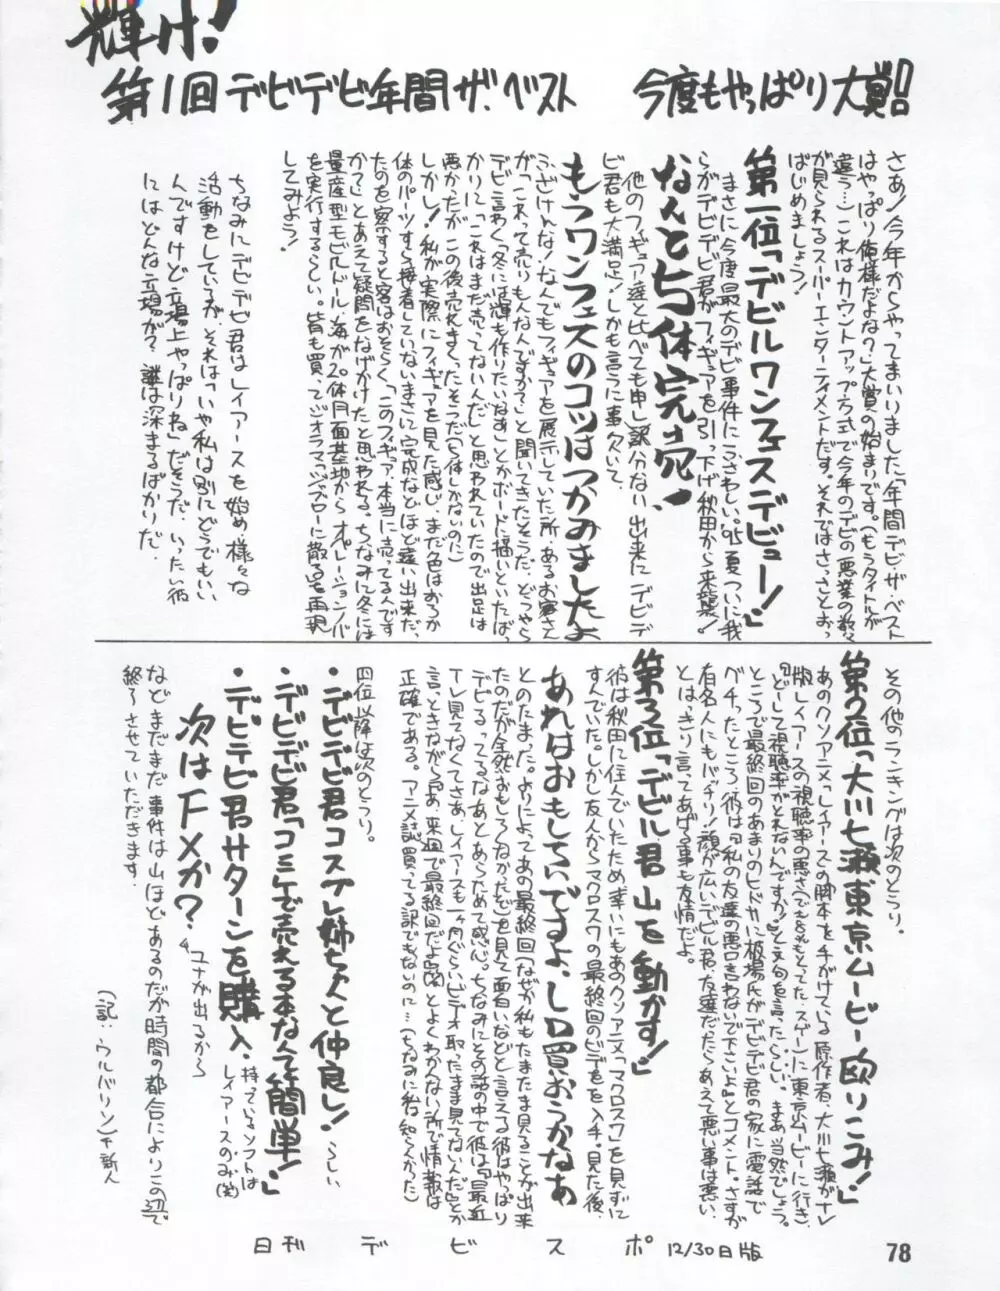 輝け!
第1回デビデビ年間ザ・ベスト 今度もやっぱり大賞!!
さあ!今年からやってまいりました「年間デビ・ザ・ベスト
はやっぱり俺様だよな?」大賞の始まりです。(もうタイトルが
違う…)これはカウントアップ方式で今年のデビの悪業の数々
が見られるスーパーエンターティメントだす。それではさっさとおっ
ぱじめましょう!
第一位「デビルワンフェスデビュー!」
まさに今度最大のデビ事件にふさわしい。'95夏ついに我
らがデビデビ君がフィギュアを引っ下げ秋田から来襲!
なんと5体完売!
他のフィギュア達と比べても申し訳分ない出来にデビデ
ビ君も大満足!しかも言うに事欠いて、
もうワンフェスのコツはつかみましたよ
ふざけんな!なんでもフィギュアを展示していた所、あるお客さん
が「これって売りもんなんですか?」と聞いてきたそうだ。どうやら
デビ言わく「冬には輝も作りたいなぁ」とかボードに描いといたば
かりに「これはまだ売ってないんだ」と思われていたので出足は
悪かったがこの後売れまくったそうだ(5体しかないのに)
しかし!私が実際にフィギュアを見た感じ、まだ色はおろか
体のパーツすら接着していない、まさに完成などほど遠い出来だっ
たのを察すると客はおそらく「このフィギュア本当に売ってるんです
か?」とあえて疑問をなげかけたと思われる。ちなみに冬には
量産型モビルドール海が20体月面基地からオペレーションバ
を実行するらしい。皆も買ってジオラマ「ジャブローに散る」を再現
してみよう!
ちなみにデビデビ君はレイアースを始め様々な
活動をしているが、それは「いや私は別にどうでもいい
んですけど立場上やっぱりね」だそうだ。いったい彼
にはどんな立場が?謎は深まるばかりだ。
その他のランキングは次のとうり。
第2位「大川七瀬東京ムービー殴りこみ!」
あのクソアニメ「レイアース」の脚本を手がけている原作者、大川七瀬がテレ
版レイアースの視聴率の悪さに東京ムービーに行き、
「どーして視聴率がとれないんですか?」と文句を言ったらしい。まあ当然でしょう。
ところで最終回のあまりのヒドサに板場氏がデビデビ君の家に電話で
グチったところ、彼は「私の友達の悪口言わないで下さいよ」とコメント。さすが
有名人にもバッチリ顔が広いデビル君。友達だったらあえて悪い事は悪い
とはっきり言ってあげる事も友情だよ。
第3位「デビル君山を動かす!」
彼は秋田に住んでいたため幸いにもあのクソアニメ「マクロス7」を見ずに
すんでいた。しかし友人からマクロス7の最終回のビデオを入手し見た後、
あれはおもしろいですよ。LD買おうかなぁ
とのたまった。よりによってあの最終回(なぜか私もたまたま見ることが出来
たのだが全然おもしろくなかったぞ)を見て面白いなどと言えてる彼はやっぱり
デビるってるなあとあらためて感心。ちなみにその話の中で彼は「最近
テレ見てなくてさあ、レイアースも一ヶ月くらいビデオ取ったまま見てないんだ」とか
言っときながら「あ、来週で最終回だよ(笑)」とよくわかない所で情報は
正確である。アニメ誌買ってる訳でもないのに…(ちなみに私は知らんかった)
四位以降は次のとうり。
・デビデビ君コスプレ姉ちゃんと仲良し! らしい
・デビデビ君「コミケで売れる本なんて簡単!」
・デビデビ君サターンを購入. 持っているソフトは
レイアースのみ(笑)
次はFXか?
ユナが出るから
などまだまだ事件は山ほどあるのだが時間の都合によりこの辺で
終らさせていただきます.
(記:ウルバリン)千新人
日刊デビスポ 12/30日版
78